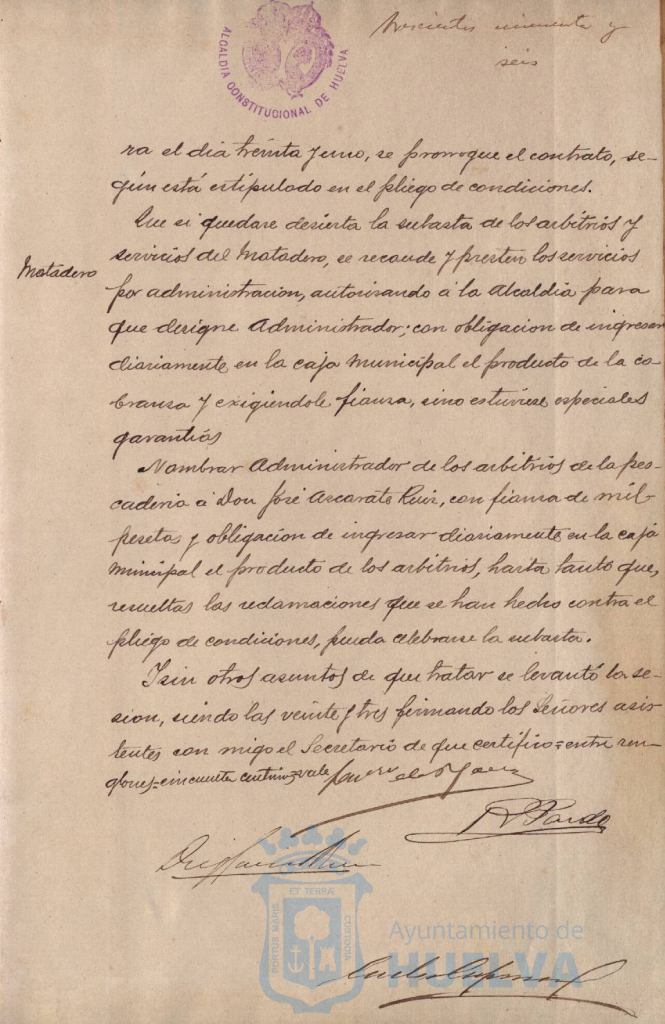 trescientos cincuenta y
seis
ALCALDIA CONSTITUCIONAL DE HUELVA
ra el dia treinta Junio, se prorrogue el contrato, se-
gún está estipulado en el pliego de condiciones.
Que si quedare desierta la subasta de los arbitrios y
Matadero
servicios del Matadero, se recaude y presten los servicios
por administracion, autorizando á la Alcaldia para
que designe Administrador; con obligacion de ingresar
diariamente en la caja Municipal el producto de la co-
branza y exigiendole fianza, sino estuviese especiales
garantias
Nombrar Administrador de los arbitrios de la pes-
caderia á Don José Ascarate Ruiz, con fianza de mil
pesetas y obligacion de ingresar diariamente en la caja
Municipal el producto de los arbitrios, hasta tanto que,
resueltas las reclamaciones que se han hecho contra el
pliego de condiciones, pueda celebrarse la subasta.
Y sin otros asuntos de que tratar se levantó la se-
sion, siendo las veinte y tres firmando los Señores asis
tentes con migo el Secretario de que certifico=entre ren-
glones=cincuenta centimos=vale
R Pardo
ET TERRÆ
PORTUS MARIS
CUSTODIA
Ayuntamiento de
HUELVA